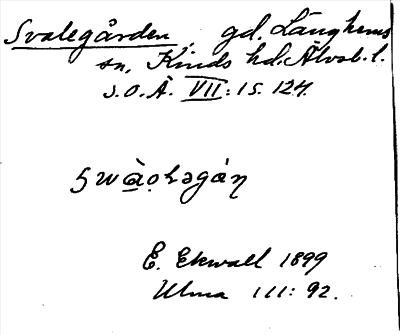 Svalegården, gd. Länghems
sn, Kinds hd. Älvsb. l.
S.O.Ä. VII: 15. 124.
E. Ekwall 1899
Ulma 111: 92.